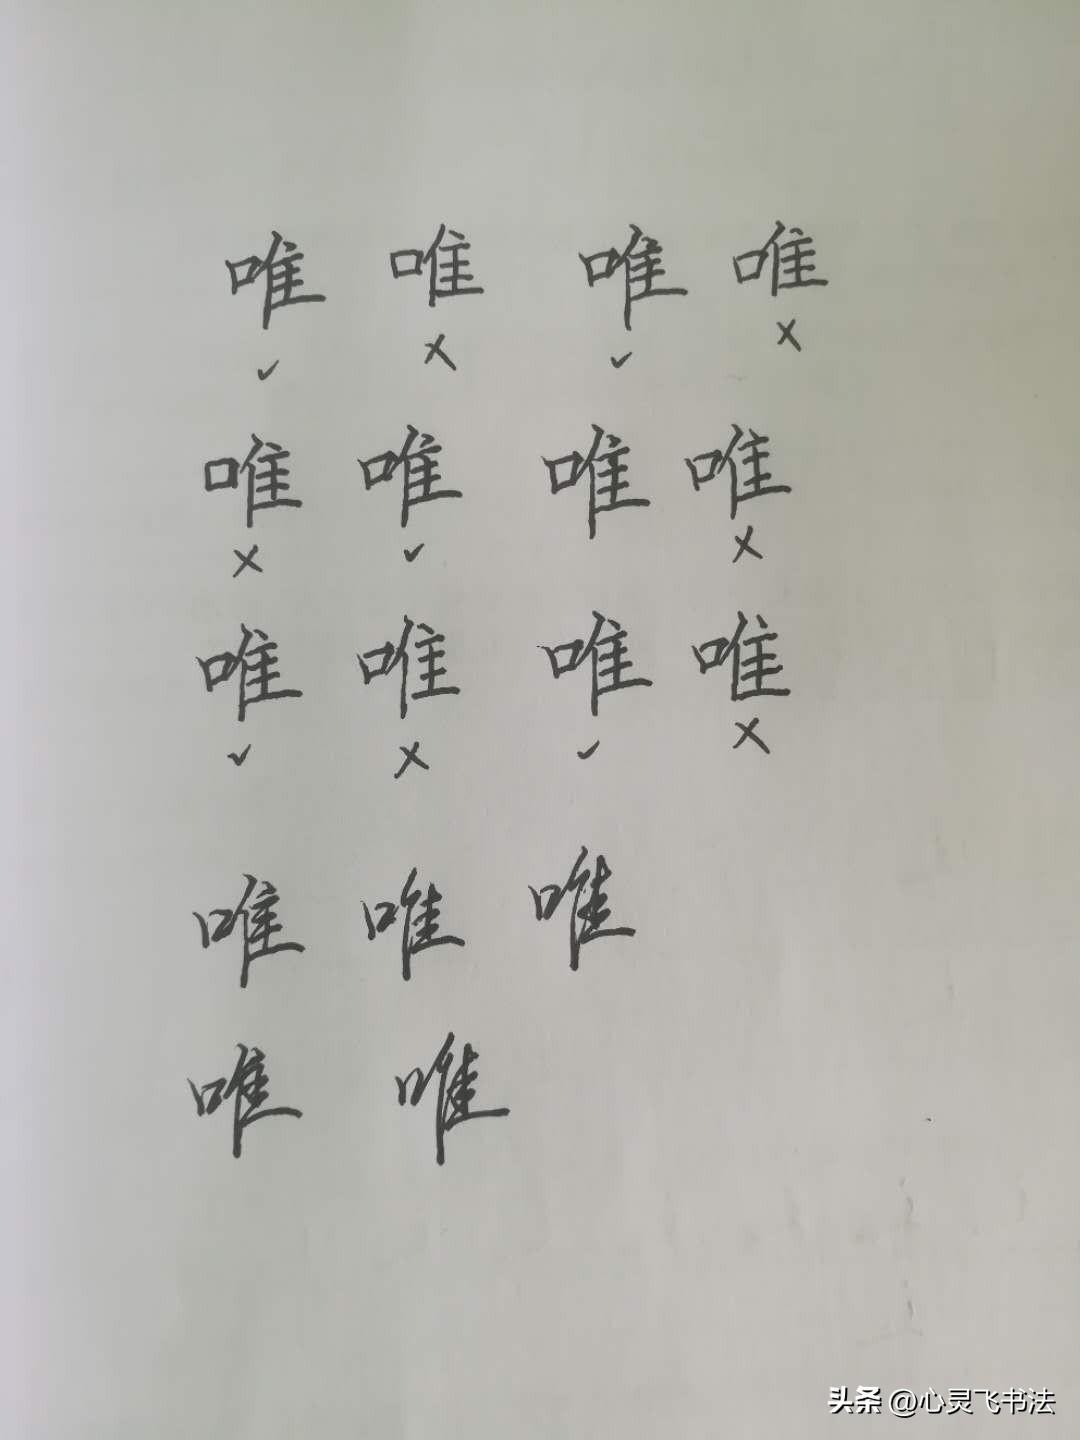 唯 唯 唯 唯
✓ × ✓ ×
唯 唯 唯 唯
× ✓ ×
唯 唯 唯 唯
✓ × ✓ ×
唯 唯 唯
唯 唯
头条 @心灵飞书法